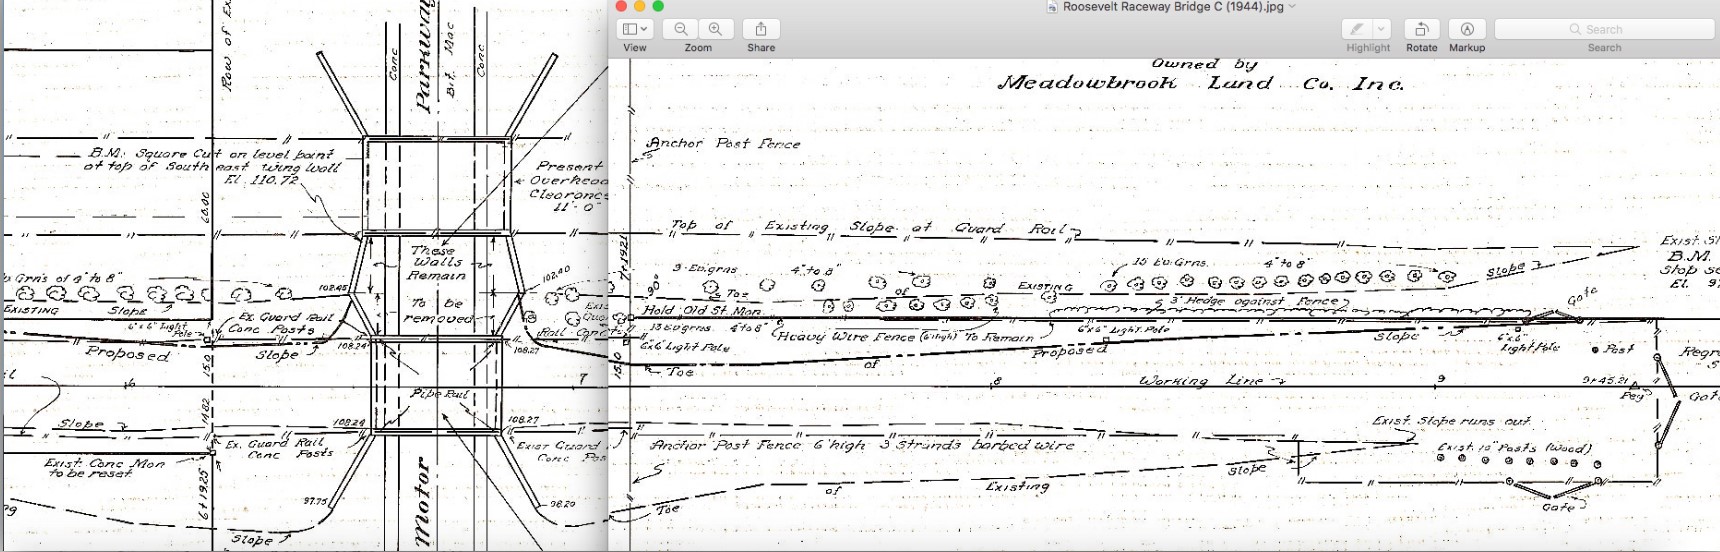 Roosevelt Raceway Bridge C (1944).jpg
View
Zoom
Share
Highlight
Rotate
Markup
Search
Search
Row of Ex
Conc
Parkway
Bit. Mac
Conc
Owned by
Meadowbrook Land Co. Inc.
B.M. Square Cut on level point
at top of South east wing wall
El. 110.72
Present
Overhead
Clearance
11'-0"
Anchor Post Fence
60.00
Top of Existing Slope at Guard Rail
These
Walls
Remain
To be
removed
7+19.21
90°
Grns of 4" to 8"
102.45
102.40
9 Ev. grns. 4" to 8"
EXISTING
15 Ev. Grns. 4" to 8"
Slope
Exist. Sl
B.M.
El. 9
EXISTING Slope
Ex. Guard Rail
Conc Posts
6"x6" Light
Pole
Toe of
3' Hedge against Fence
Gate
Hold Old St. Mon.
13 Evgrns. 4" to 8"
Heavy Wire Fence (6' high) To Remain
6"x6" Light Pole
6"x6" Light Pole
Slope
6"x6"
Light Pole
Post
Regr
Proposed Slope
108.24
108.27
15.0
15.0
Toe of Proposed
6
7
8
Working Line
9
9+45.21
Peg
Gate
Pipe Rail
14.82
Slope
108.24
108.27
Ex. Guard Rail
Conc Posts
Exist Guard
Conc Pos
Exist. Conc Mon
to be reset
Anchor Post Fence 6' high 3 Strands barbed wire
Exist. Slope runs out
Exist. 10" Posts (Wood)
Slope
6+19.25
97.75
98.20
Motor
Toe of Existing
Gate
Slope